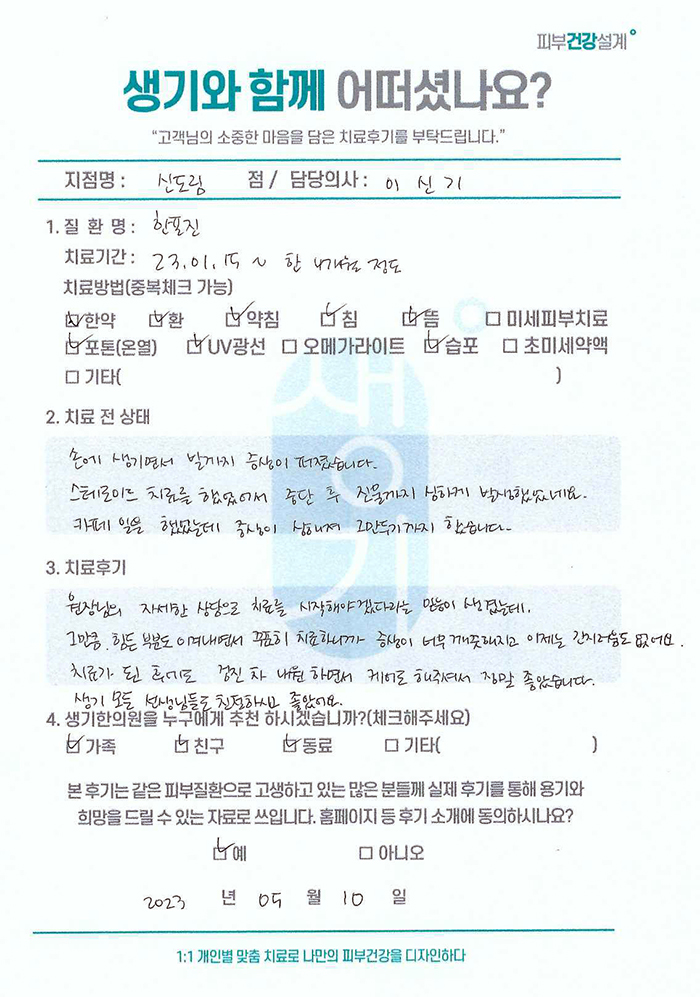 피부건강설계
생기와 함께 어떠셨나요?
“고객님의 소중한 마음을 담은 치료후기를 부탁드립니다.”
지점명 : 신도림 점 / 담당의사 : 이신기
1. 질 환 명 : 한포진
치료기간 : 23.01.15 ~ 한 4개월 정도
치료방법(중복체크 가능)
☑한약 ☑환 ☑약침 ☑침 ☑뜸 □미세피부치료
☑포톤(온열) ☑UV광선 □오메가라이트 ☑습포 □초미세약액
□기타( )
2. 치료 전 상태
손에 생기면서 발까지 증상이 퍼졌습니다.
스테로이드 치료를 했었어서 중단 후 진물까지 심하게 발생했었네요.
카페 일을 했었는데 증상이 심해져 그만두기까지 했습니다.
3. 치료후기
원장님의 자세한 상담으로 치료를 시작해야겠다라는 믿음이 생겼는데.
그만큼 힘든 부분도 이겨내면서 꾸준히 치료하니까 증상이 너무 깨끗해지고 이제는 간지러움도 없어요.
치료가 된 후에도 검진 차 내원 하면서 케어도 해주셔서 정말 좋았습니다.
생기 모든 선생님들도 친절하시고 좋았어요.
4. 생기한의원을 누구에게 추천 하시겠습니까?(체크해주세요)
☑가족 ☑친구 ☑동료 □기타( )
본 후기는 같은 피부질환으로 고생하고 있는 많은 분들께 실제 후기를 통해 용기와
희망을 드릴 수 있는 자료로 쓰입니다. 홈페이지 등 후기 소개에 동의하시나요?
☑예 □아니오
2023 년 05 월 10 일
1:1 개인별 맞춤 치료로 나만의 피부건강을 디자인하다
생기